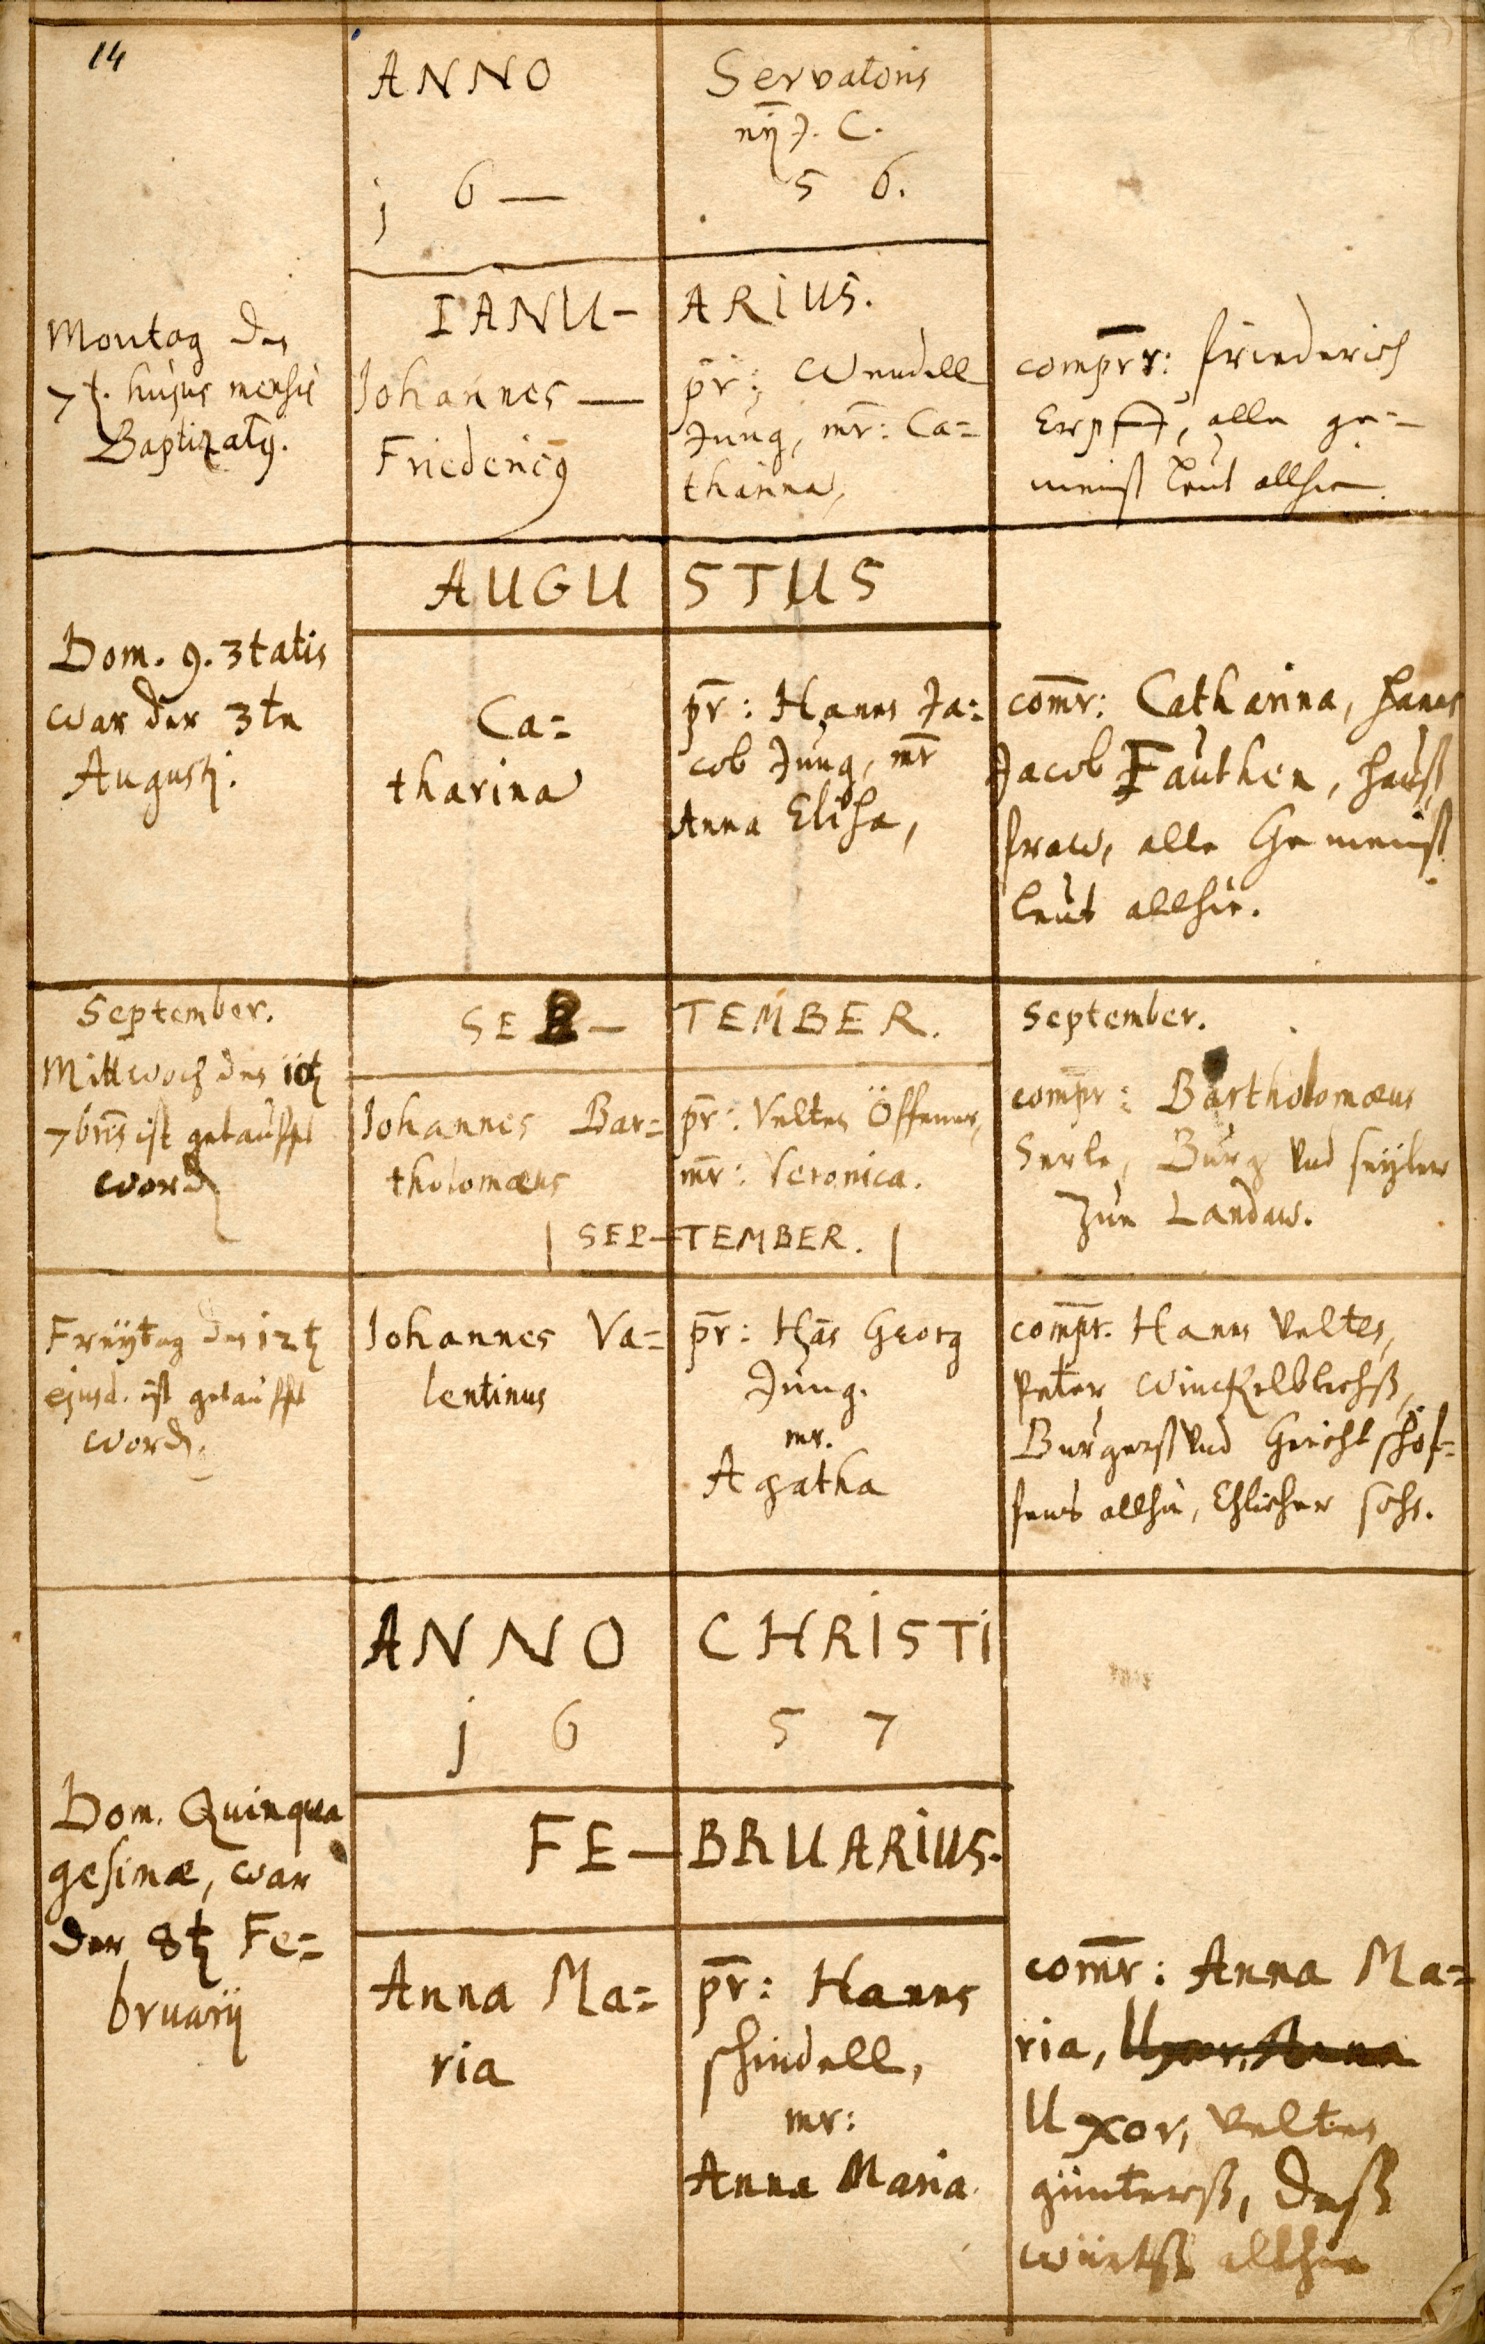 14
ANNO Servatoris
nrj J. C.
j 6 — 5 6.
IANU- ARIUS.
Montag den
7t. hujus mensis
Baptizatq.
Johannes —
Friedericq
pr: Wendell
Jung, mr: Ca=
tharina,
comprr: Friederich
Erpff, alle ge=
meinß leut allhie.
AUGU STUS
Dom. 9. 3tatis
war der 3te
Augusti.
Ca=
tharina
pr: Hanns Ja=
cob Jung, mr
Anna Elisa,
comr: Catharina, Hans
Jacob Fauthen, hauß
fraw, alle Gemeinß
leut allhie.
September.
Mittwoch den 10t
7bris ist getaufft
word
SEP- TEMBER.
Johannes Bar=
tholomæus
pr: Velten Öffener,
mr: Veronica.
September.
compr: Bartholomæus
Serle, Burg und seyler
zue Landaw.
SEP-TEMBER.
Freÿtag den 12t
ejusd. ist getaufft
word.
Johannes Va=
lentinus
pr: Hãs Georg
Jung.
mr.
Agatha
compr. Hanns Velten,
Peter Winckelblechß,
Burgerß und Gericht schöf=
fens allhie, Ehlicher sohn.
ANNO CHRISTI
j 6 5 7
FE-BRUARIUS.
Dom. Quinqua
gesimæ, war
der 8t Fe=
bruarij
Anna Ma=
ria
pr: Hanns
schindell,
mr:
Anna Maria.
comr: Anna Ma=
ria, Uxor, Anna
Uxor, Velten
günterß, deß
würtß allhie